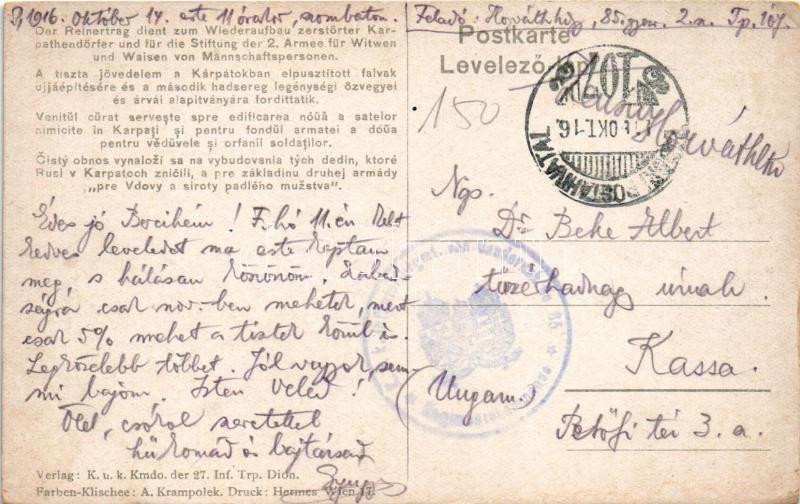 1916. október 14. este 11 órakor, szombaton.
Der Reinertrag dient zum Wiederaufbau zerstörter Kar-
pathendörfer und für die Stiftung der 2. Armee für Witwen
und Waisen von Mannschaftspersonen.
A tiszta jövedelem a Kárpátokban elpusztitott falvak
ujjáépitésére és a második hadsereg legénységi özvegyei
és árvái alapitványára fordittatik.
Venitŭl cŭrat serveşte spre edificarea nóŭă a satelor
nimicite in Karpaţi şi pentru fondŭl armatei a dóŭa
pentru vĕdŭvele şi orfanii soldaţilor.
Čistý obnos vynaloží sa na vybudovania tých dedin, ktoré
Rusi v Karpatoch zničili, a pre základinu druhej armády
„pre Vdovy a siroty padlého mužstva".
Édes jó Bercikém! F. hó 11.én kelt
kedves leveledet ma este kaptam
meg, s hálásan köszönöm. Szabad-
ságra csak nov.-ben mehetek, mert
csak 5% mehet a tisztek közül is.
Legközelebb többet. Jól vagyok, sem-
mi bajom. Isten Veled!
Ölel, csókol szeretettel
hű komád és bajtársad
Verlag: K. u. k. Kmdo. der 27. Inf. Trp. Dion.
Farben-Klischee: A. Krampolek. Druck: Hermes Wien 17.
Feladó: Horváth 85. gyor. 2. a. Tp. 107.
Postkarte
Levelező-lap
107
OKT.-16.
150
Ngs.
Dr Beke Albert
tüzérhadnagy úrnak.
Kassa.
(Ungarn.)
Petőfi tér 3. a.
85